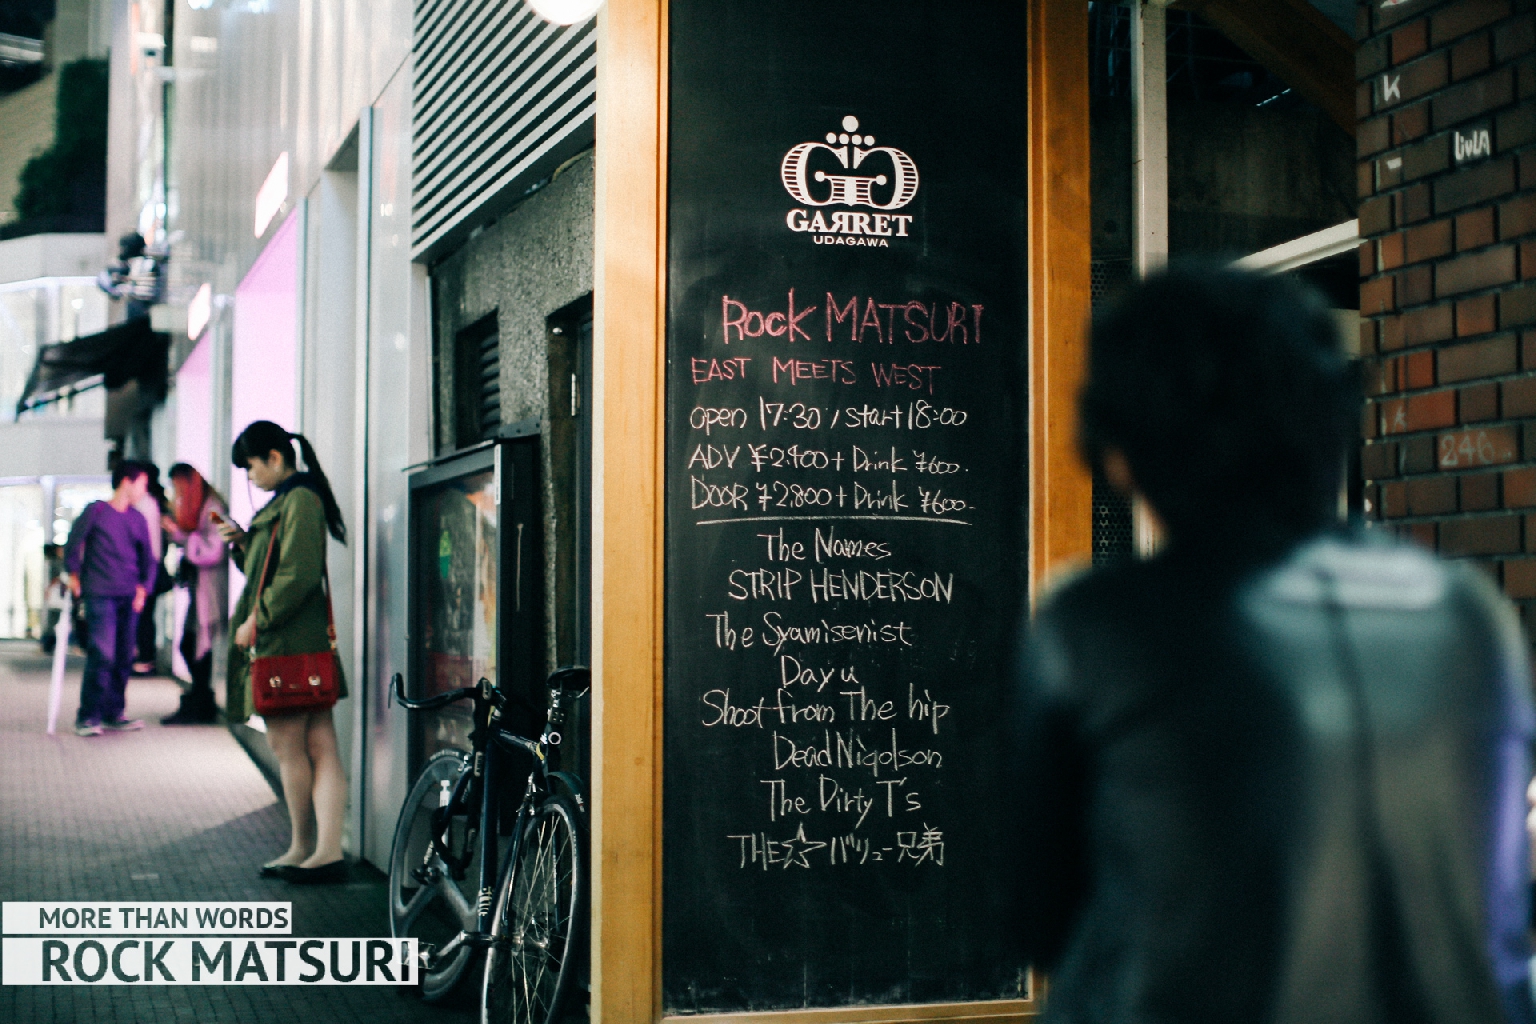 GARRET
UDAGAWA
Rock MATSURI
EAST MEETS WEST
open 17:30 / start 18:00
ADV ¥2.400 + Drink ¥600.
DOOR ¥2.800 + Drink ¥600.
The Names
STRIP HENDERSON
The Syamisenist
Dayu
Shoot from The hip
Dead Niqolson
The Dirty T's
THE☆バリュー兄弟
K
246
MORE THAN WORDS
ROCK MATSURI